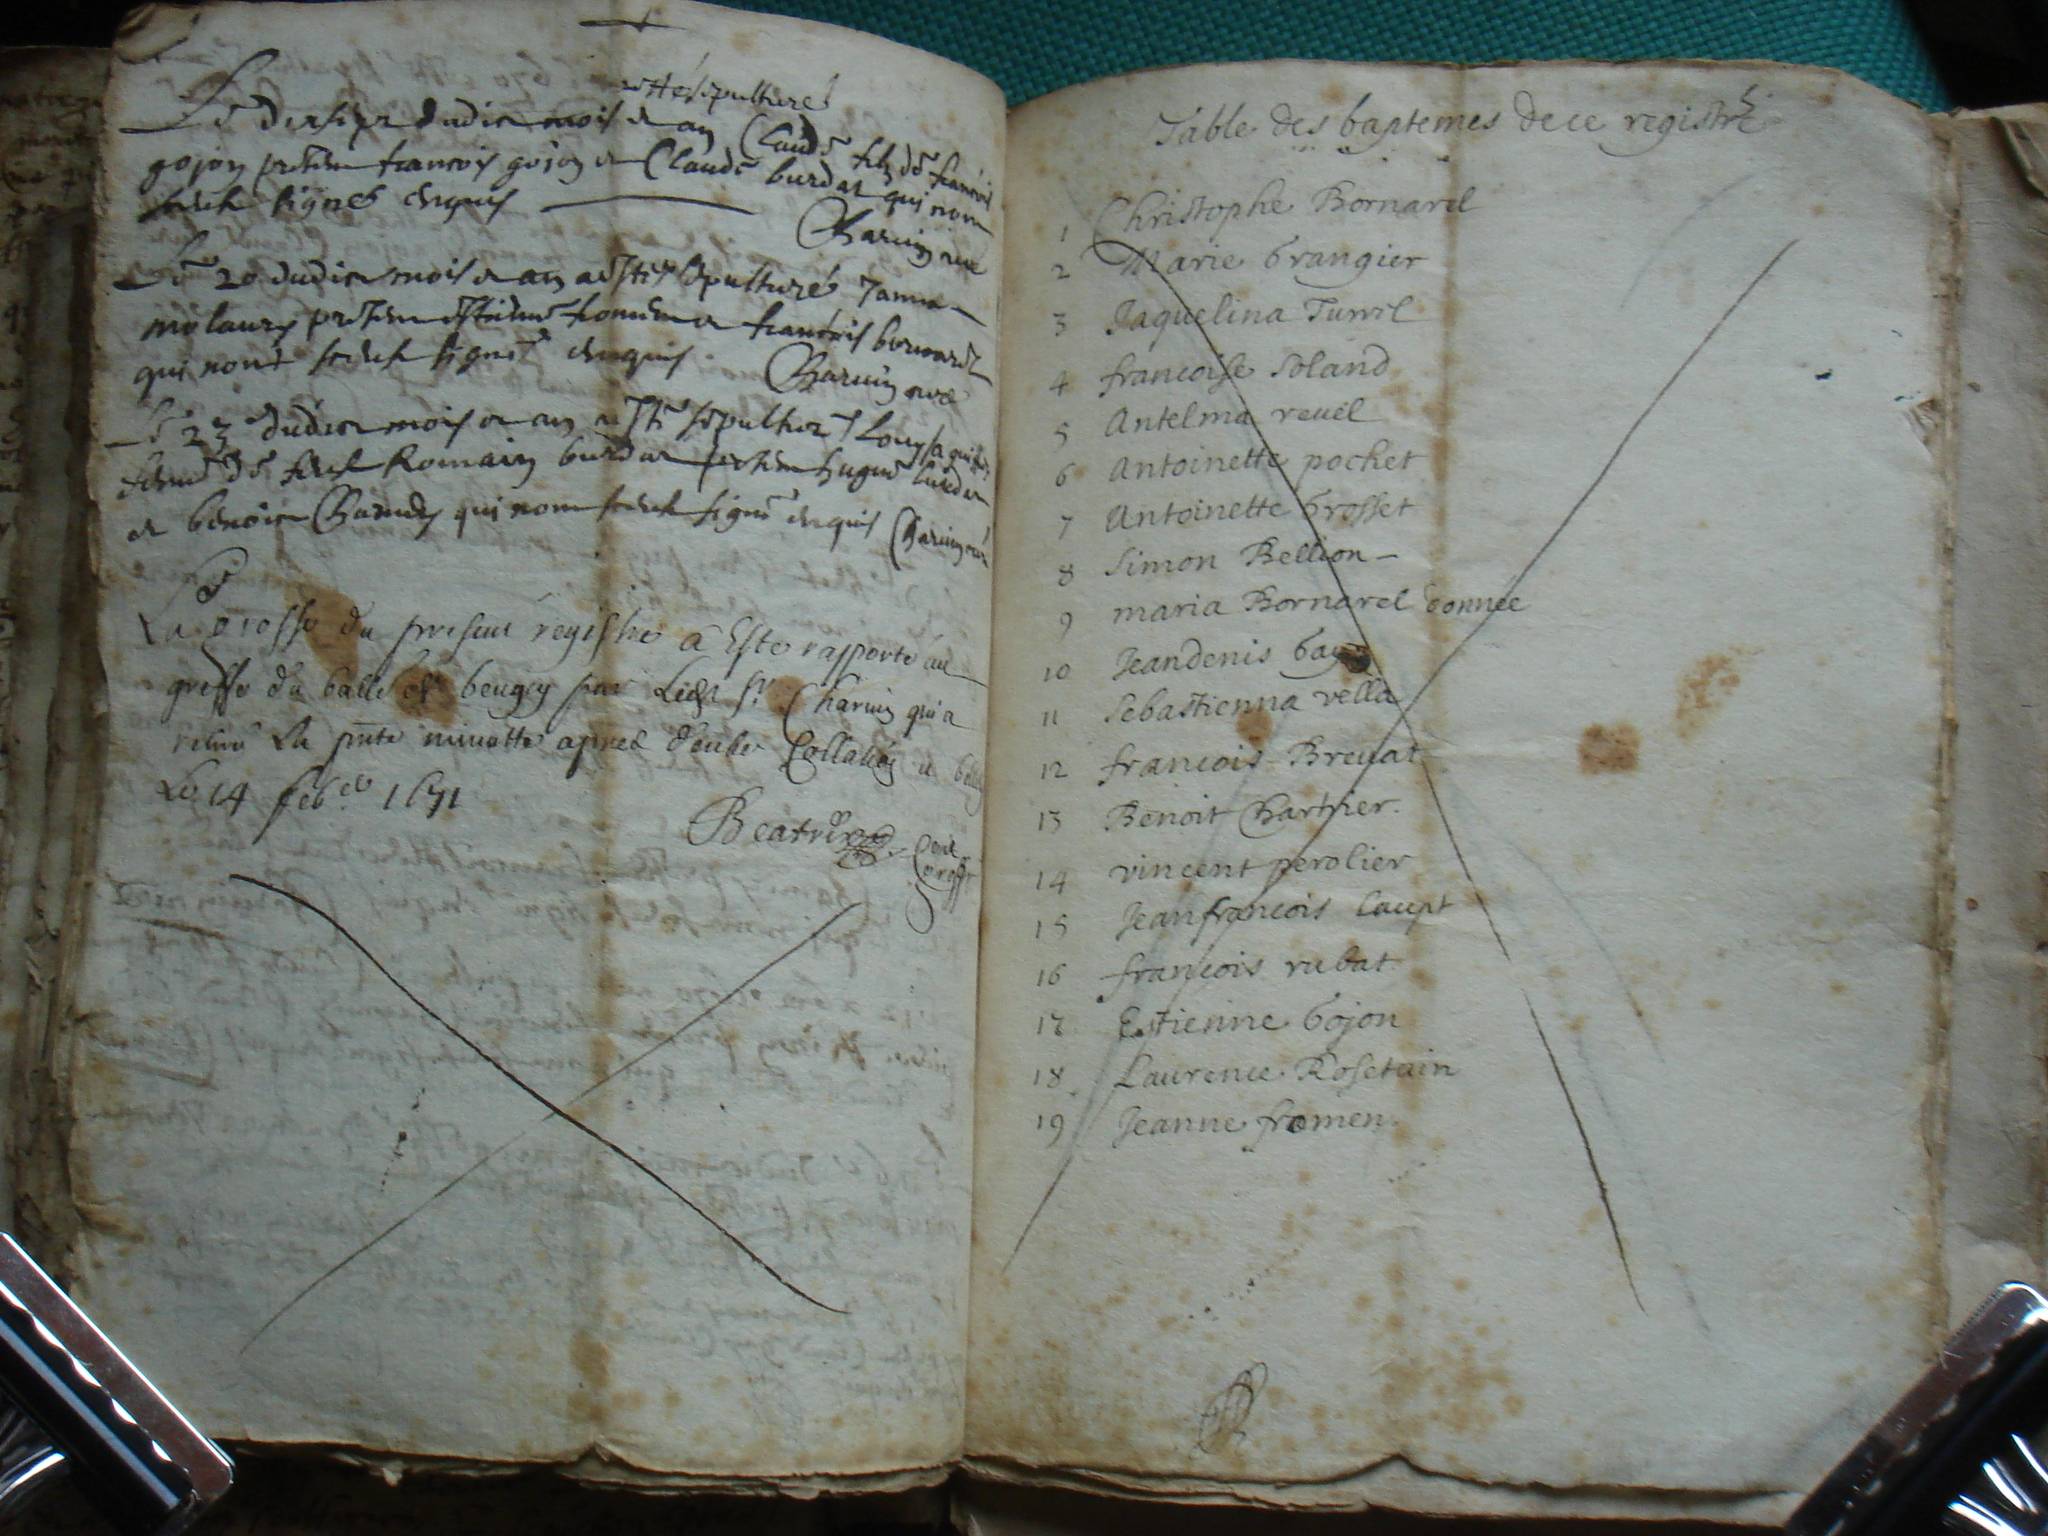 a esté sepulturé
Le dernier dudict mois et an Claude filz de francois
gojon présens francois gojon et Claude burdat qui nont
sceuz signés enquis
Charvin curé
Le 20 dudict mois et an a esté sepulturé Janne
molaury présens estienne et francois bornard
qui nont sceuz signer enquis. Charvin curé
Le 23 dudict mois et an a esté sepulturé
femme de feuz Romain burdat présens hugue burdat
et benoict qui nont sceuz signer enquis Charvin curé
La grosse du present registre a Esté rapporté au
greffe du balli de beugey par Ledit Sr. Charvin qui a
retiré La pnte minutte apres deube Collation a belley
Le 14 feber 1691
Table des baptemes de ce registre
1 Christophe Bornarel
2 Marie Grangier
3 Jaquelina Turril
4 francoise Soland
5 Antelma revel
6 Antoinette pochet
7 Antoinette Grosset
8 Simon Bellion
9 maria Bornarel donnée
10 Jeandenis Gay
11 Sebastienna vella
12 francois Brevat
13 Benoit Charthier.
14 vincent perolier
15 Jeanfrancois Caupt
16 francois rubat
17 Estienne Gojon
18 Laurence Rosetain
19 Jeanne fromen.